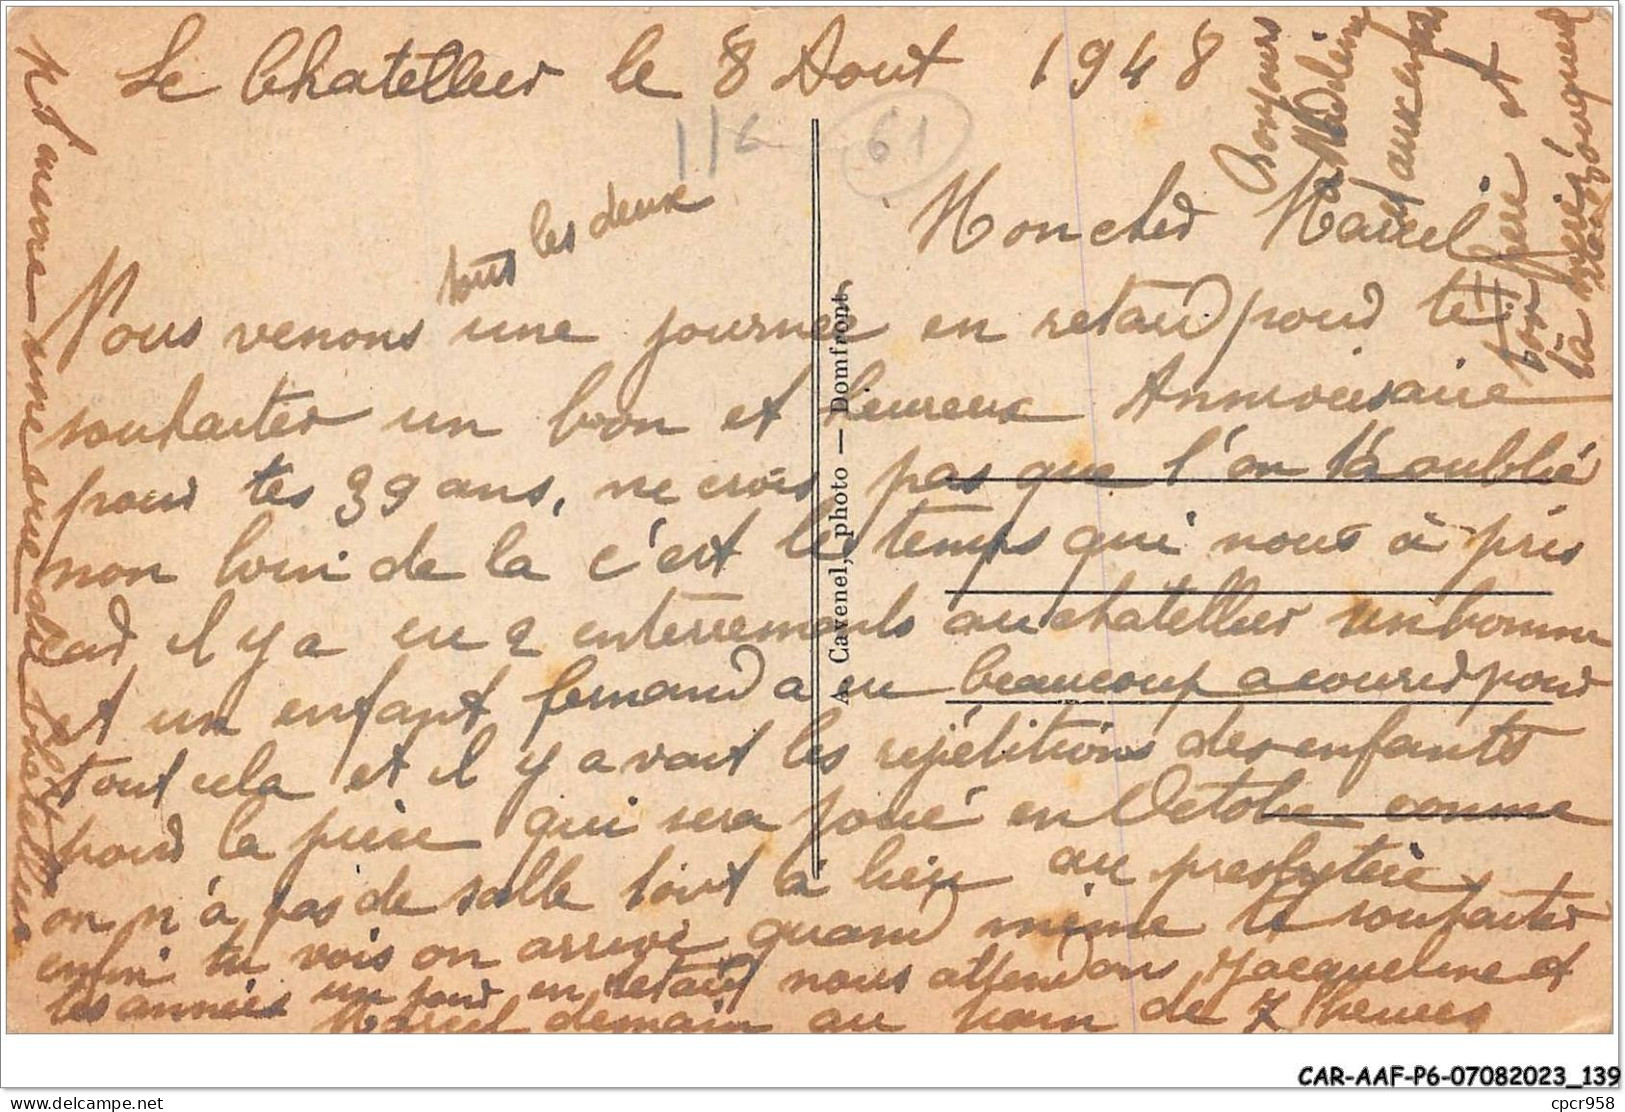 Le Chatellier le 8 Aout 1948
116
61
Moncher Marcel
tous les deux
Nous venons une journee en retard pour te
souhaiter un bon et heureux Anniversaire
pour tes 39 ans, ne crois pas que l'on t'a oublié
non loin de la c'est le temps qui nous à pris
car il y a eu 2 enterrements au chatellier un homme
et un enfant fernand a eu beaucoup a courir pour
tout cela et il y avait les répétitions des enfants
pour la pièce qui sera joué en Octobre comme
on n'à pas de salle tout à lieu au presbytère
enfin tu vois on arrive quand même te souhaiter
tes années un jour en retard nous attendons Jacqueline et
Marcel demain au train de 7 heures
Bonjours
a Madeleine
et aux enfants
ton frere et
ta
A. Cavenel, photo — Domfront
CAR-AAF-P6-07082023_139
delcampe.net
cpcr958